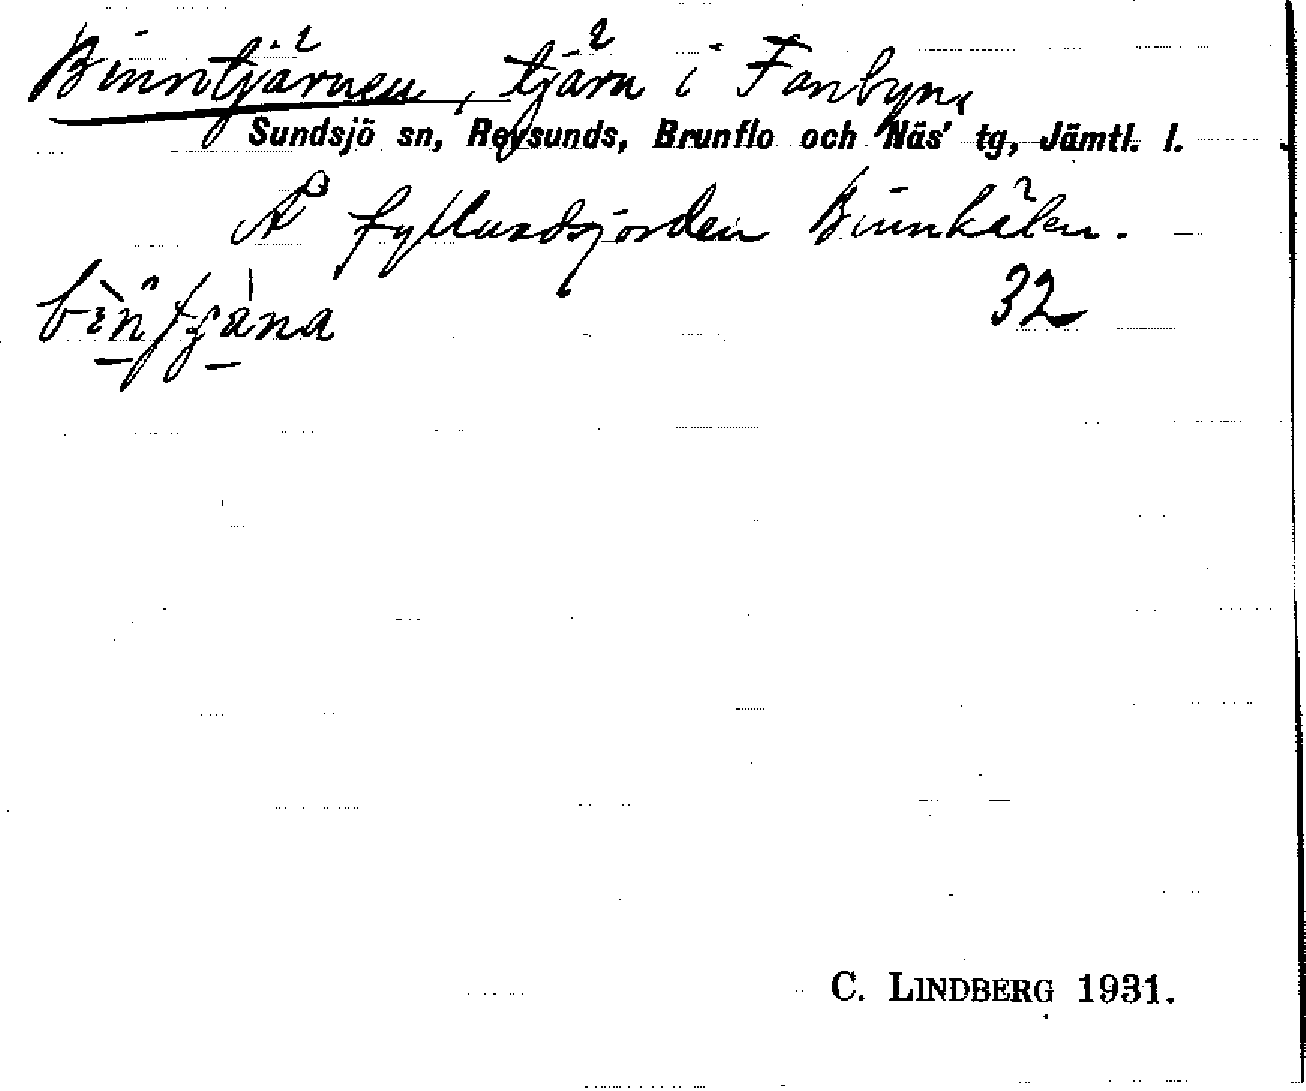 Binntjärnen, tjärn i Fanbyn,
Sundsjö sn, Revsunds, Brunflo och Näs' tg, Jämtl. l.
Å fyllnadsjorden Binnkälen.
32
C. LINDBERG 1931.